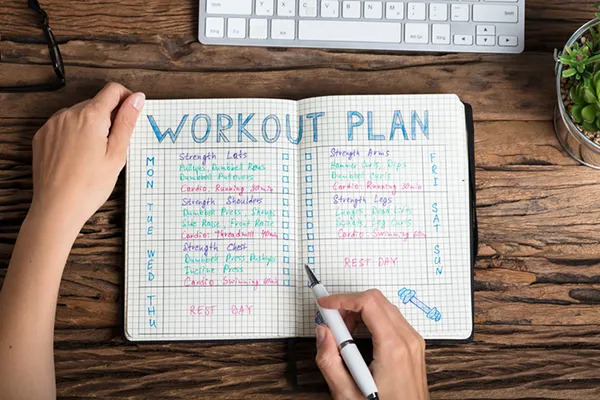 WORKOUT PLAN
MON
Strength Lats
Pullups, Dumbbell Rows
Dumbbell Pullovers
Cardio: Running 30min
TUE
Strength Shoulders
Dumbbell Press, Shrugs
Side Raise, Front Raise
Cardio: Threadmill
WED
Strength Chest
Dumbbell Press Pushups
Incline Press
Cardio: Swimming 60min
THU
REST DAY
Strength Arms
Hammer Curls, Dips
Dumbbell Curls
Cardio: Running 30min
FRI
Strength Legs
Lunges, Dead Lifts
Leg Curls
Cardio: Swimming
SAT
REST DAY
SUN